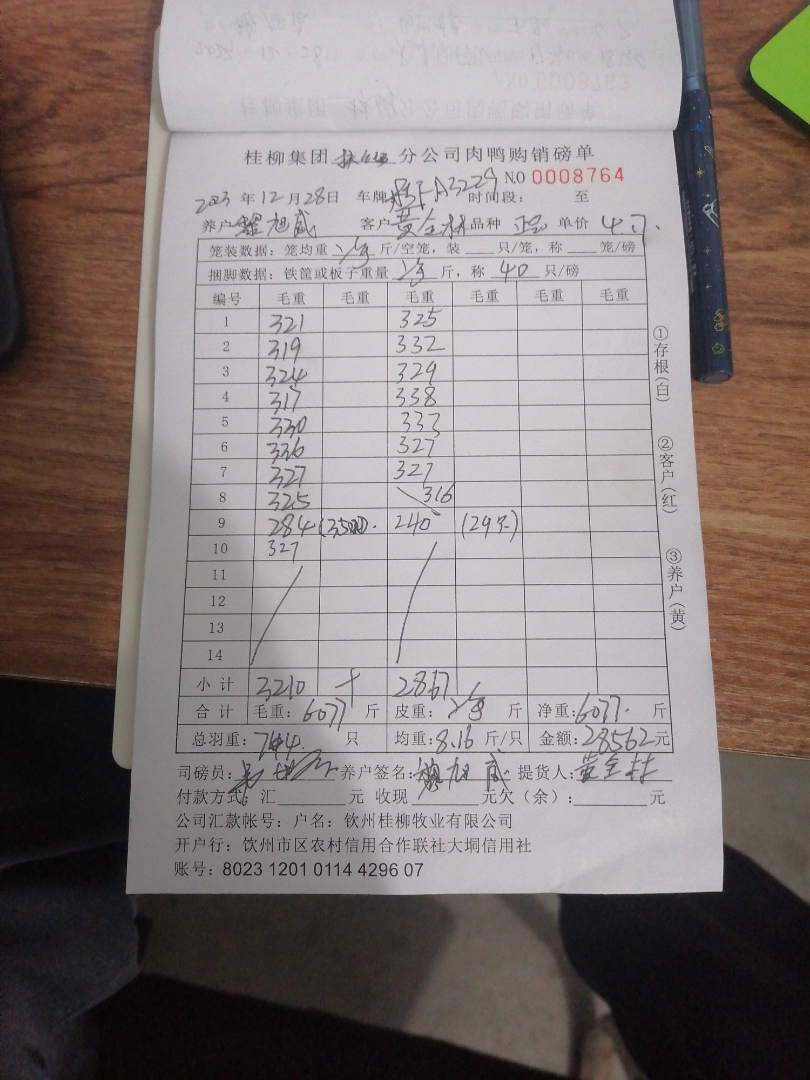 桂柳集团 分公司肉鸭购销磅单
NO 0008764
2023 年 12 月 28 日 车牌 A3229 时间段： 至
养户 旭威 客户 黄全林 品种 单价 4.7
笼装数据：笼均重 斤/空笼，装 只/笼，称 笼/磅
捆脚数据：铁筐或板子重量 斤，称 40 只/磅
编号 毛重 毛重 毛重 毛重 毛重 毛重
1 321 325
2 319 332
3 324 329
4 317 338
5 330 333
6 336 327
7 327 327
8 325 316
9 284 (35只) 240 (29只)
10 327
11
12
13
14
小计 3210 + 2867
合计 毛重：6077 斤 皮重： 斤 净重：6077 斤
总羽重：744 只 均重：8.16 斤/只 金额：28562元
司磅员： 养户签名： 旭威 提货人：黄全林
付款方式：汇 元 收现 元欠（余）： 元
公司汇款帐号：户名：钦州桂柳牧业有限公司
开户行：钦州市区农村信用合作联社大垌信用社
账号：8023 1201 0114 4296 07
①存根(白)
②客户(红)
③养户(黄)